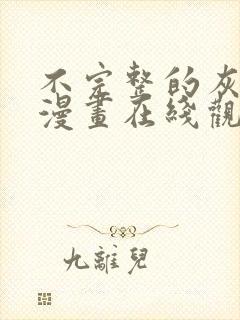 不完整的灰
漫畫在綫觀
九離兒